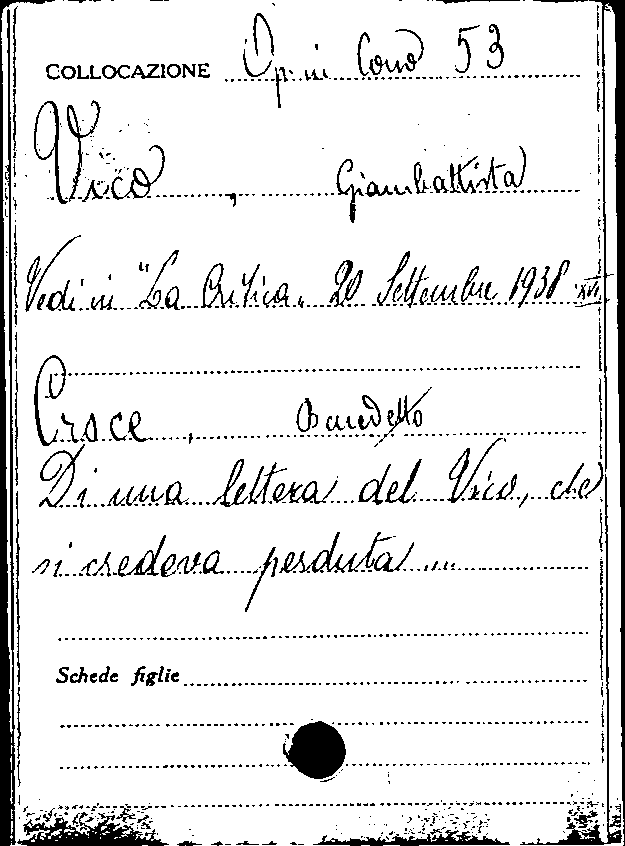 COLLOCAZIONE Op. in Corso 53
Vico, Giambattista
Vedi in "La Critica" 20 Settembre 1938 XVI
Croce, Benedetto
Di una lettera del Vico, che
si credeva perduta ....
Schede figlie